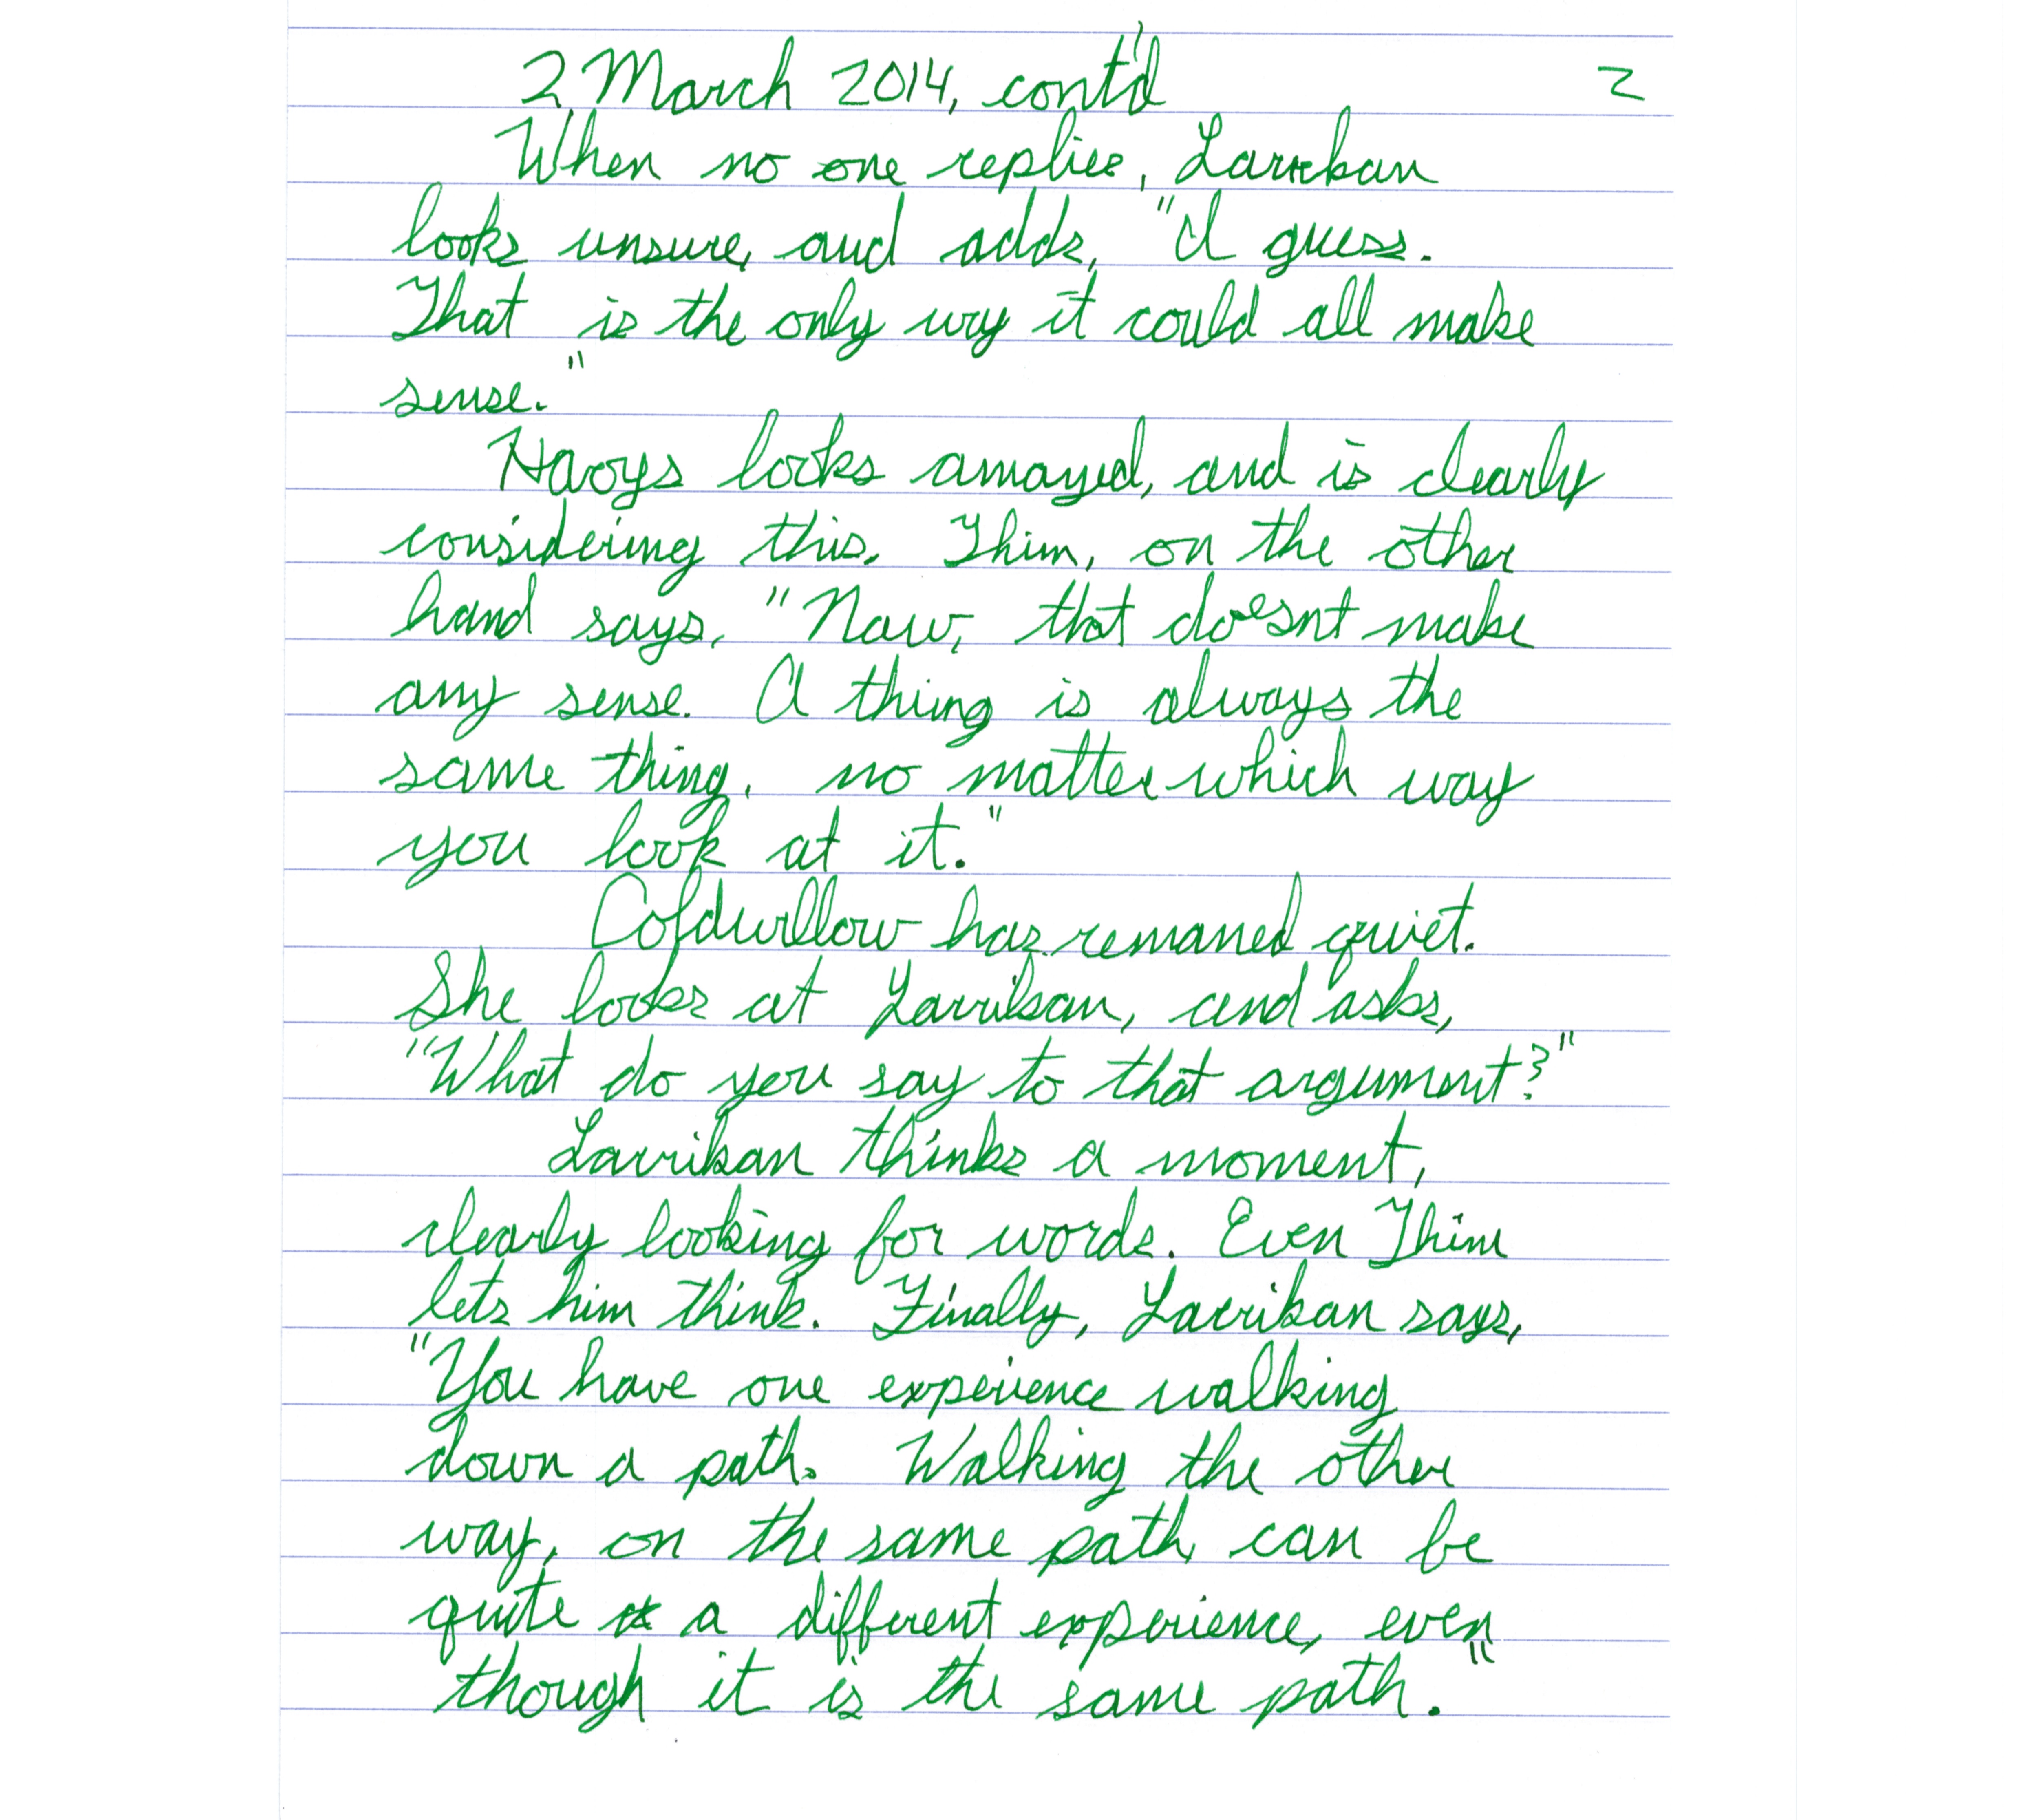 2 March 2014, cont'd 2
When no one replies, Larrikan
looks unsure, and adds, "I guess.
That is the only way it could all make
sense."
Havoys looks amazed, and is clearly
considering this. Thim, on the other
hand says, "Naw, that doesnt make
any sense. A thing is always the
same thing, no matter which way
you look at it."
Coldwillow has remaned quiet.
She looks at Larrikan, and asks,
"What do you say to that argument?"
Larrikan thinks a moment,
clearly looking for words. Even Thim
lets him think. Finally, Larrikan says,
"You have one experience walking
down a path. Walking the other
way, on the same path, can be
quite a different experience, even
though it is the same path."